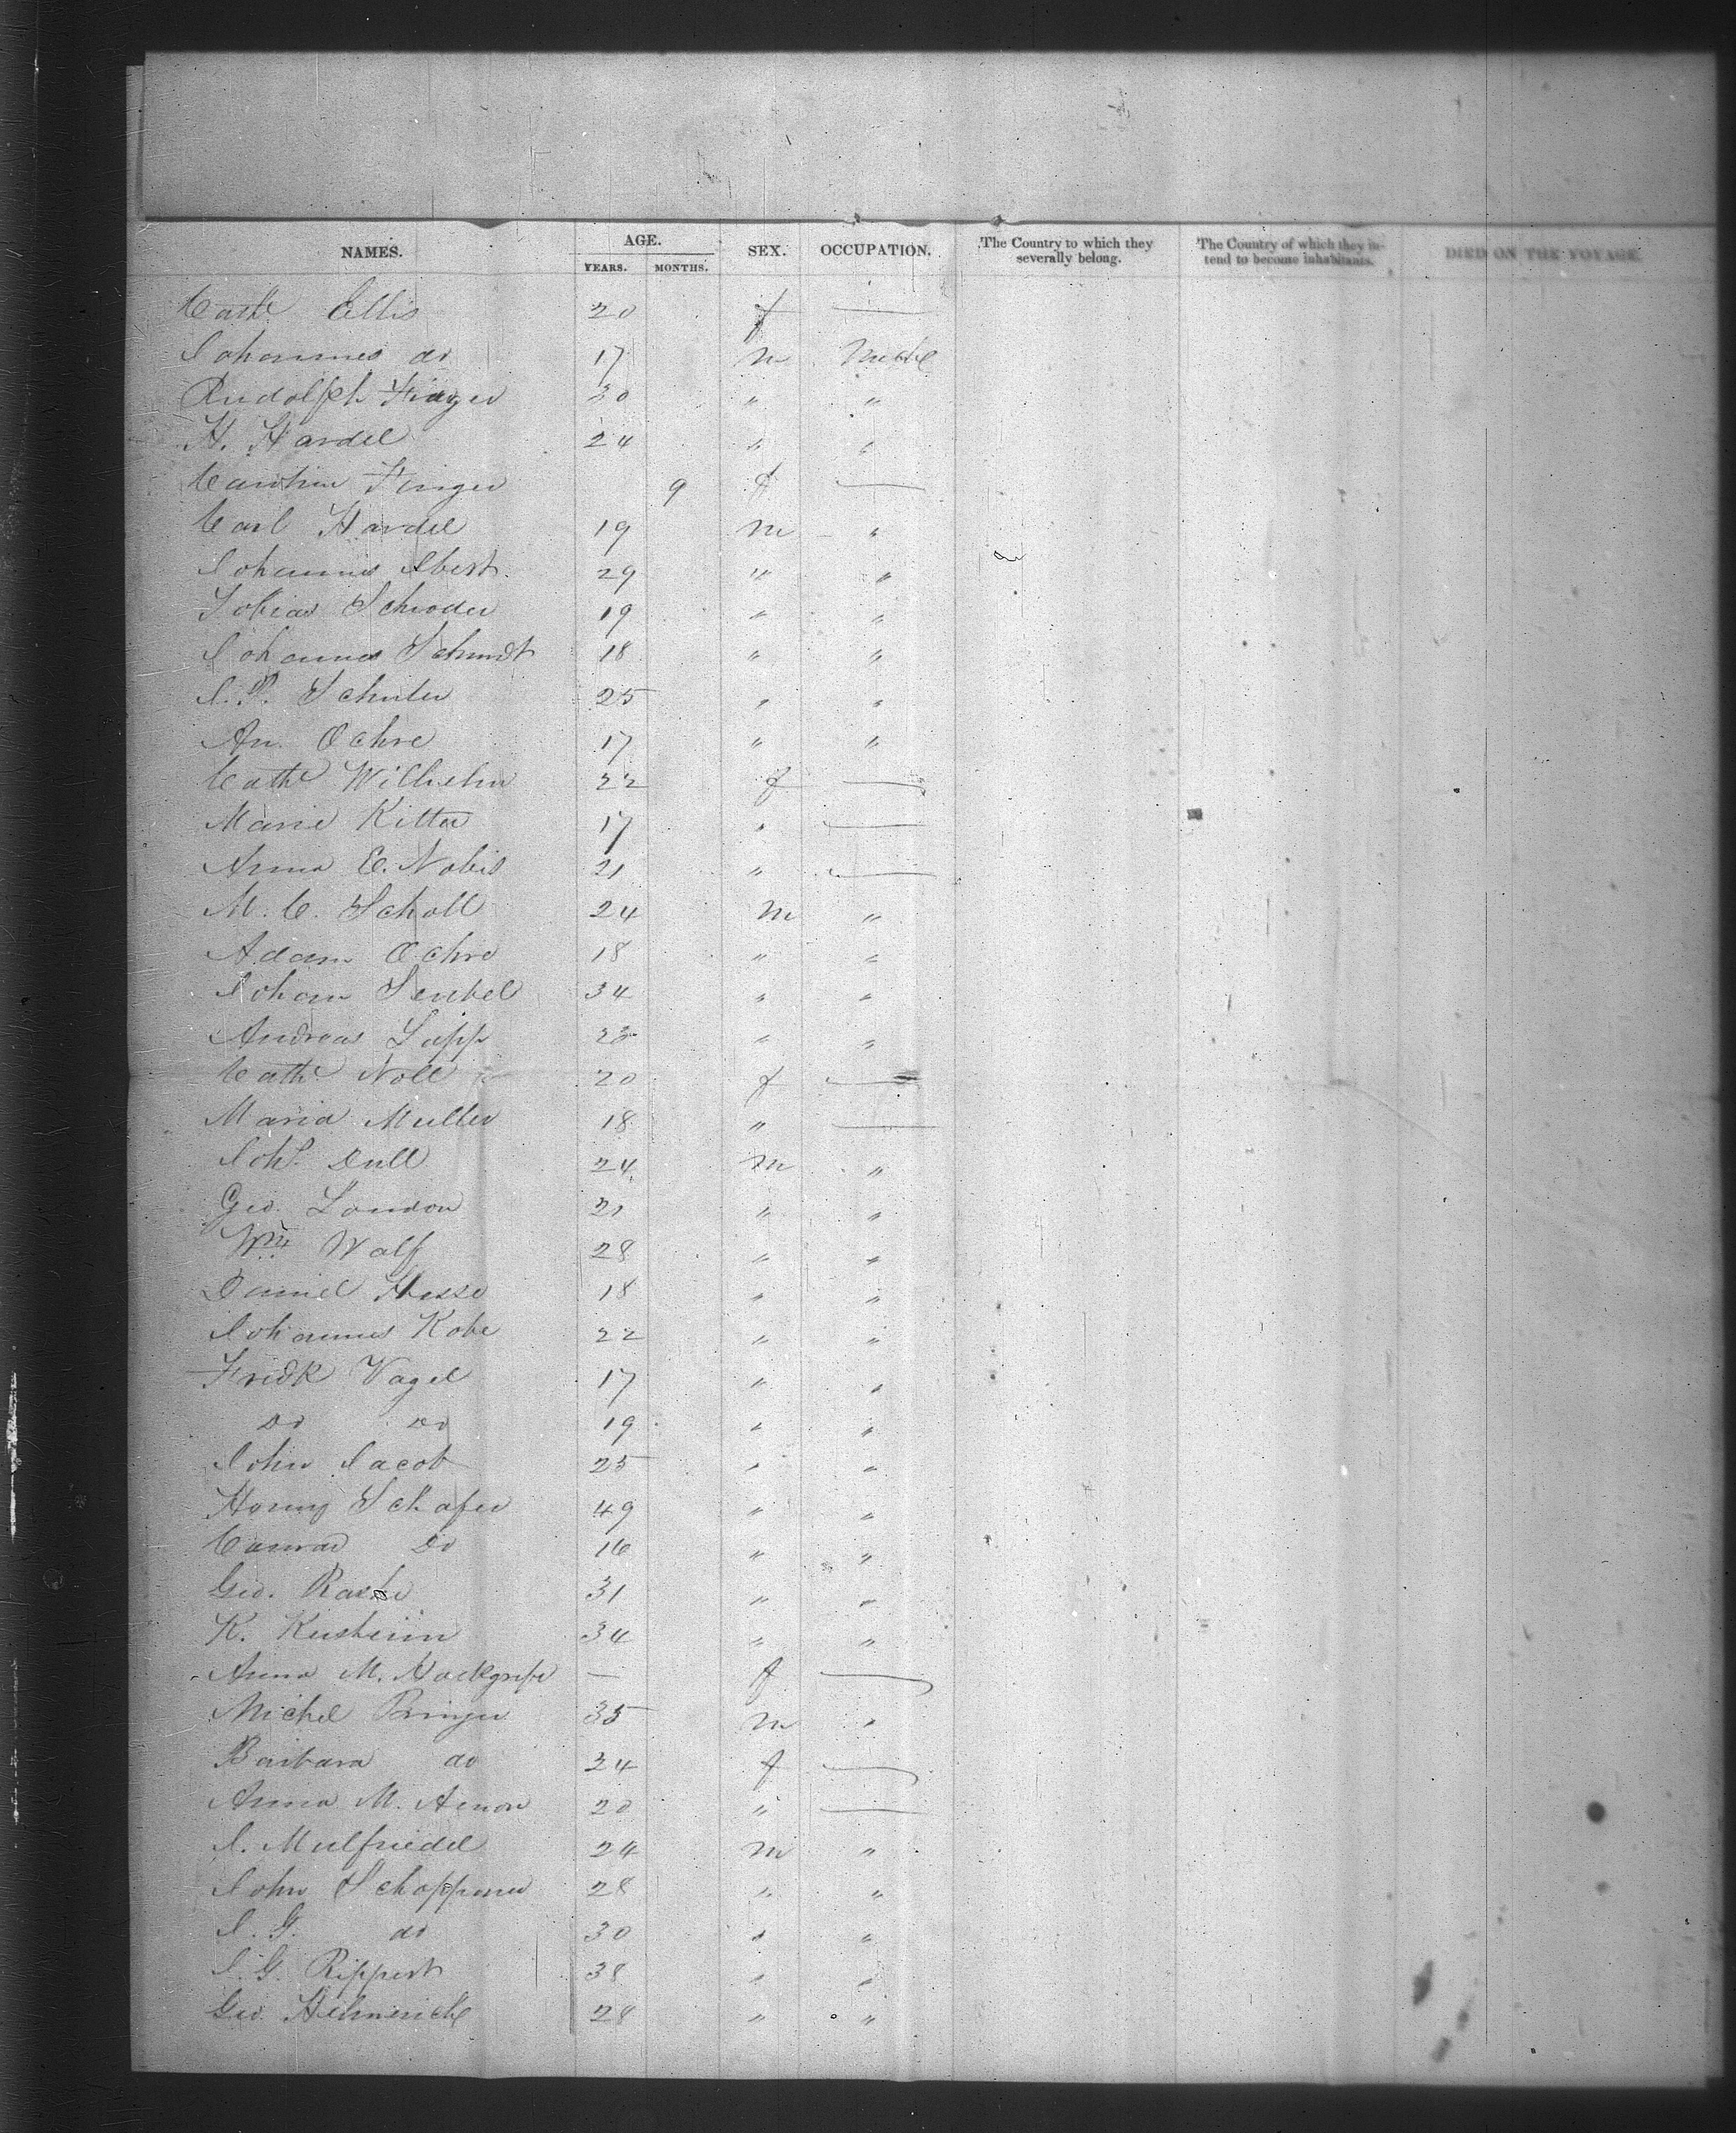 NAMES. AGE. SEX. OCCUPATION. The Country to which they severally belong. The Country of which they intend to become inhabitants. DIED ON THE VOYAGE.
YEARS. MONTHS.
Cathe Ellis 20 f —
Johannes do 17 m
Rudolph Finger 30 " "
H. Hardel 24 " "
Finger 9 f —
Carl Hardel 19 m "
Johannes Ebert 29 " "
Tobias Schroder 19 " "
Johannes Schmidt 18 " "
J. P. 25 " "
An. Ochre 17 " "
Cathe Wilhelm 22 f —
Marie Kitter 17 " —
Anna E. Nobis 21 " —
M. C. Scholl 24 m "
Adam Ochre 18 " "
Johann 34 " "
Andreas Lapp " "
Cathe Noll 20 f —
Maria Muller 18 " —
Joh. Dull 24 m "
Geo. London 21 " "
Wm Walf 28 " "
Daniel Hesse 18 " "
Johannes Kobe 22 " "
Fredk Vogel 17 " "
Do Do 19 " "
John Jacob 25 " "
Schafer 49 " "
Conrad Do 16 " "
Geo. 31 " "
K. 34 " "
Anna M. — f —
Michel 35 m "
Barbara do 24 f —
Anna M. 20 " —
J. Mulfriedel 24 m "
John Schoppner 28 " "
J. G. do 30 " "
J. G. Rippert 38 " "
Geo. Helmerich 28 " "